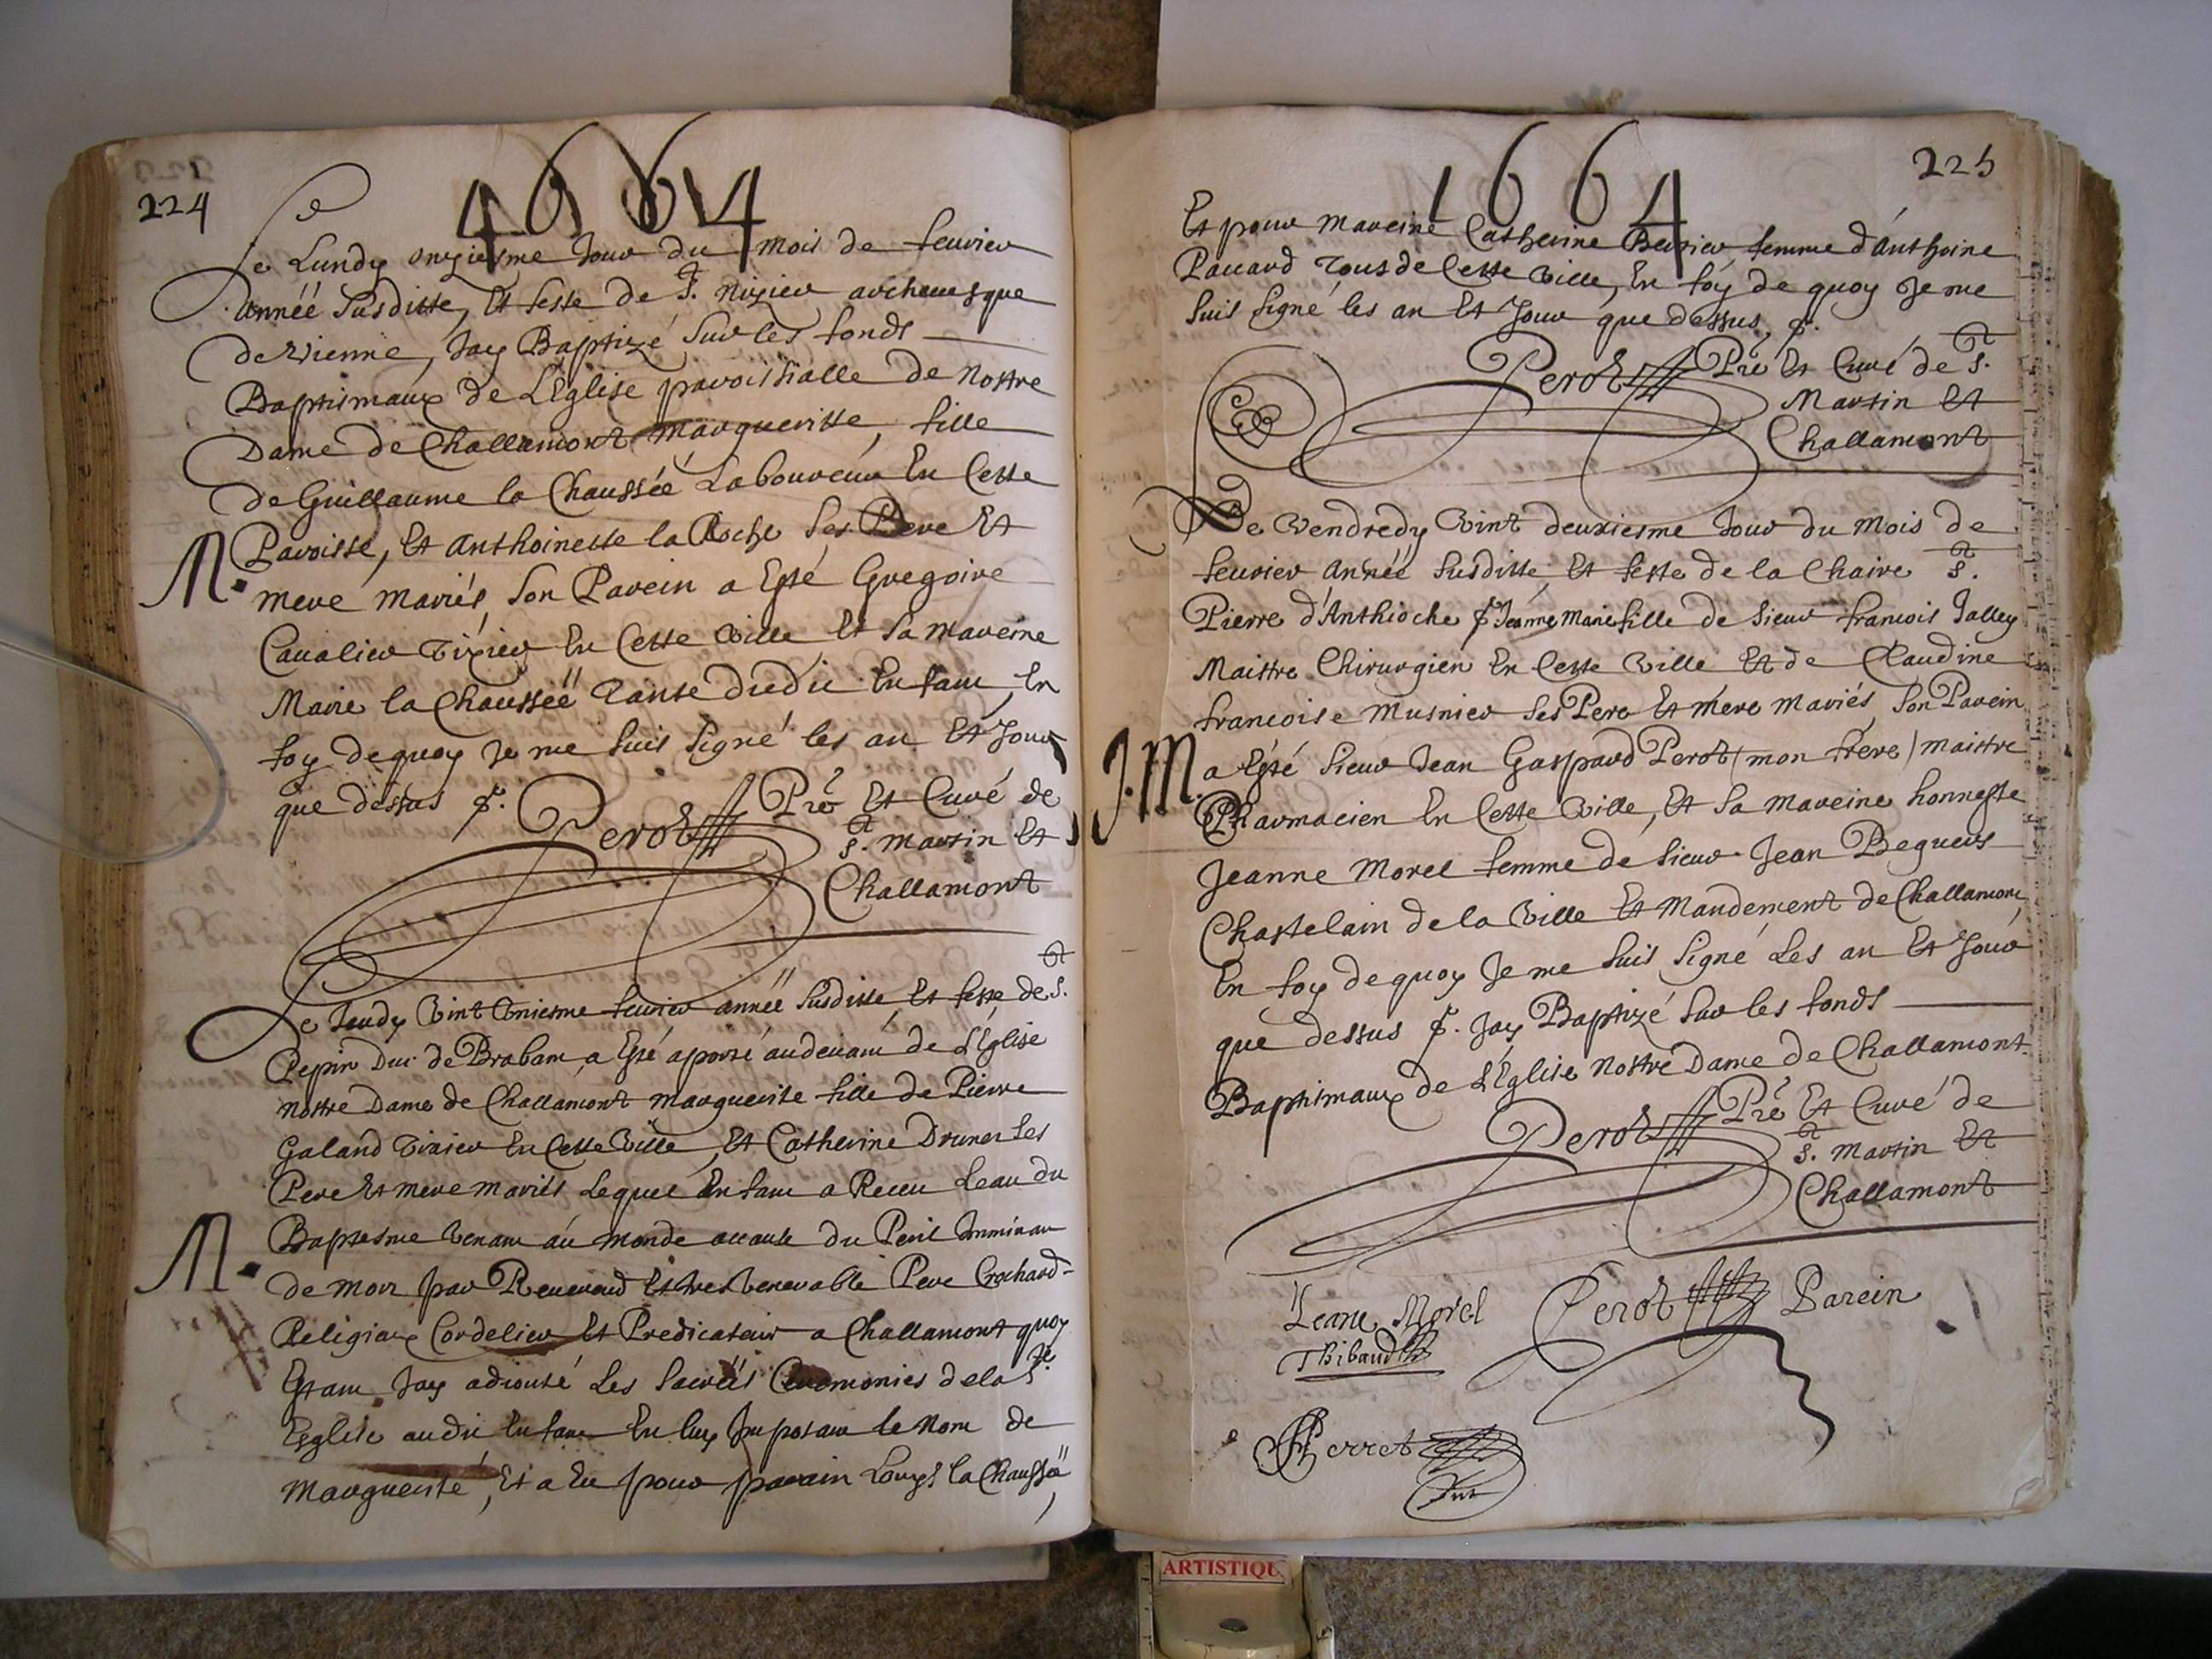 224
1664
Le Lundy onziesme Jour du mois de feurier
Année susditte, et feste de St. Nizier archeuesque
de Vienne, Jay Baptizé sur les fonds
Baptismaux de L'Eglise paroissialle de Nostre
Dame de Challamont Margueritte, fille
de Guillaume la Chaussée Laboureur En Cette
Paroisse, et Anthoinette la Roche ses Pere et
M.
mere mariés, son Parein a Esté Gregoire
Caualier Tixier En Cette Ville et sa mareine
Marie la Chaussée Tante dudit Enfant, En
foy de quoy Je me suis signé les an et Jour
que dessus
Perot Pre et Curé de
St. Martin et
Challamont
Le Jeudy Vint Vniesme feurier année susditte, et feste, de St.
Pepin Duc de Braban, a Esté aporté audeuant de L'Eglise
Nostre Dame de Challamont Margueritte fille de Pierre
Galand Tixier En Cette Ville, et Catherine Druner ses
Pere et mere mariés Lequel Enfant a Receu Leau du
Baptesme Venant au monde acause du Peril Imminant
M.
de mort par Reuerend et tres Venerable Pere Crochard
Religiaux Cordelier et Predicateur a Challamont quoy
Estant Jay adiouté Les sacréés Ceremonies de la Ste
Esglise audit Enfant En luy Imposant le nom de
Margueritte, et a Eu pour parain Louys la Chausséé,
225
1664
Et pour mareine Catherine femme d'Anthoine
Pauard Tous de Cette Ville, En foy de quoy Je me
suis signé les an et Jour que dessus
Perot Pre et Curé de St.
Martin et
Challamont
Le Vendredy Vint deuxiesme Jour du Mois de
feurier Année susditte et feste de la Chaire St.
Pierre d'Anthioche Jeanne Marie fille de sieur francois Jalley
Maistre Chirurgien En Cette Ville et de Claudine
francoise Musnier ses Pere et mere mariés, son Parein
J.M.
a Esté sieur Jean Gaspard Perot (mon frere) maistre
Pharmacien En Cette Ville, et sa mareine honneste
Jeanne Morel femme de sieur Jean Begueus
Chastelain de la Ville et Mandement de Challamont,
En foy de quoy Je me suis signé Les an et Jour
que dessus Jay Baptizé sur les fonds
Baptismaux de L'Eglise Nostre Dame de Challamont.
Perot Pre et Curé de
St. Martin et
Challamont
Jeane Morel Perot Parein
Thibaud
Perret
ARTISTIQU